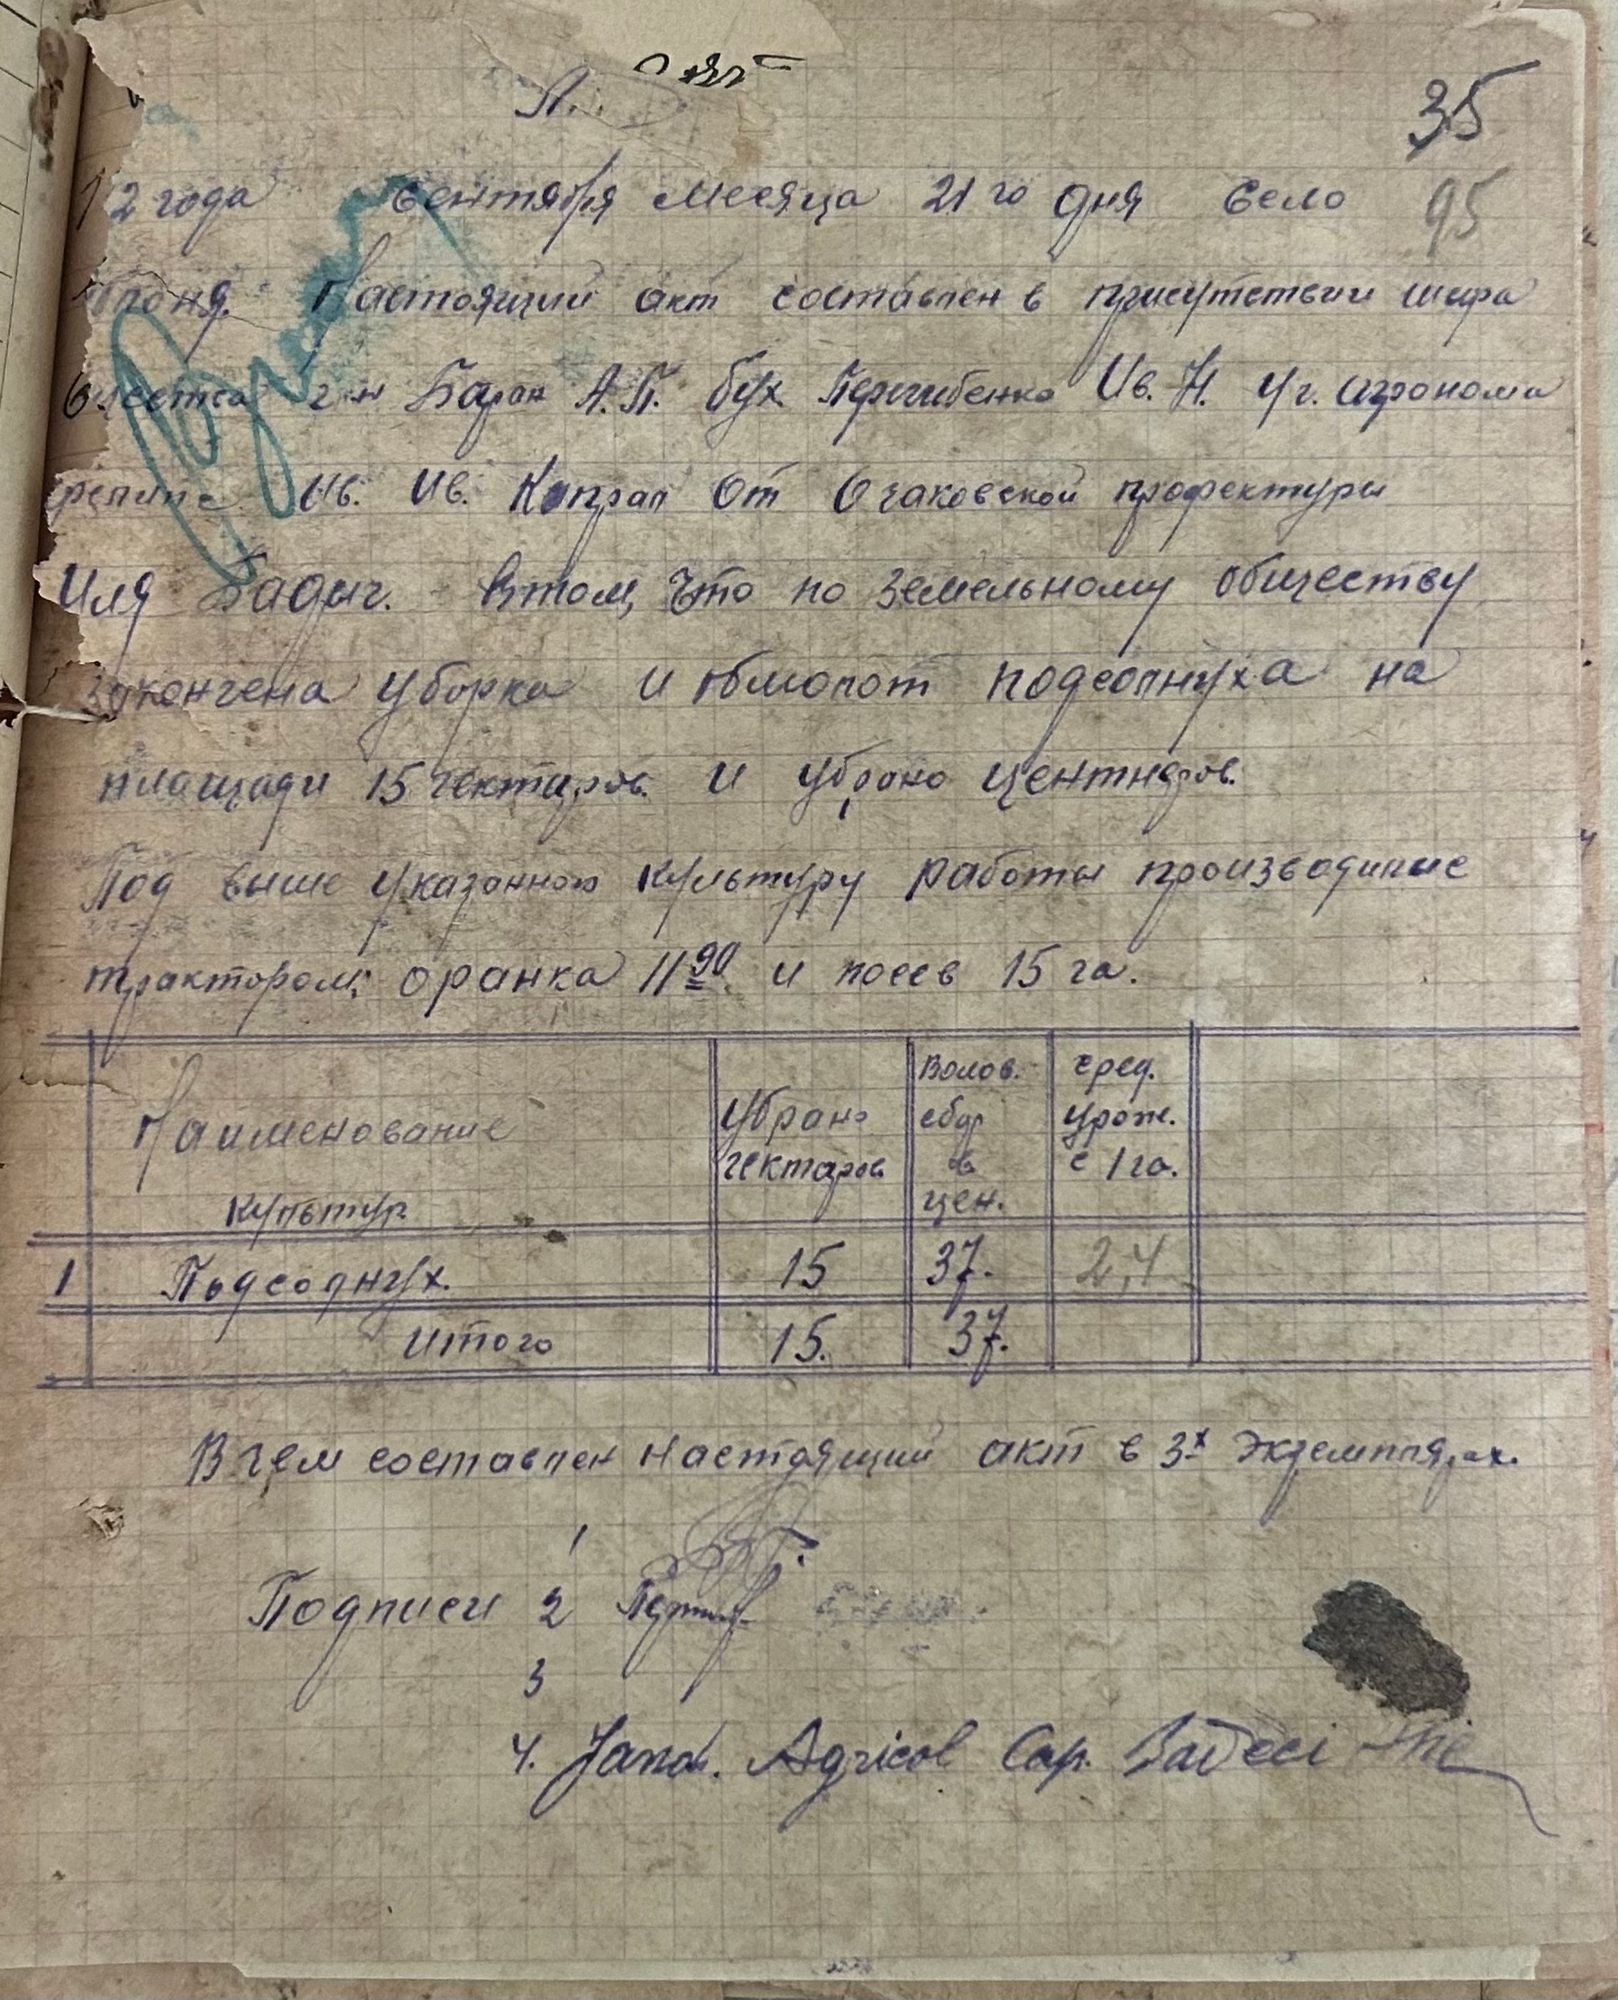 А
35
2 года Сентября месяца 21 го дня село
95
Настоящий акт составлен в присутствии шефа
г-н Баран А.П. бух. Ив. Н. Уч. агронома
Ив. Ив. Капрал От Очаковской профектуры
Иля Бадыч. Втом, Что по земельному обществу
закончена уборка и обмолот подсолнуха на
площади 15 гектаров. и уброно центнеров.
Под выше указанною культуру работы производилис
трактором; оранка 11 90 и посев 15 га.
Наименование культур
Убрано гектаров
Волов. сбор в цен.
Сред. урож. с 1 га.
1 Подсолнух. 15 37. 2,4
Итого 15. 37.
В чем составлен настоящий акт в 3х экземплярах.
1
Подписи 2
3
4. Jand. Agricol Cap. Ilie